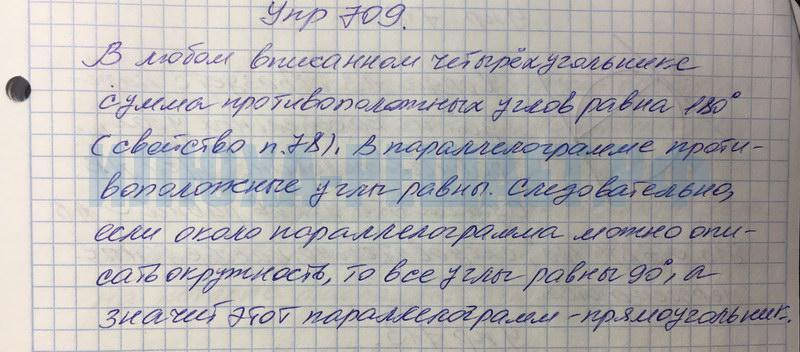 Упр 709.
В любом вписанном четырёхугольнике
сумма противоположных углов равна 180°
(свойство п.78). В параллелограмме проти-
воположные углы равны. Следовательно,
если около параллелограмма можно опи-
сать окружность, то все углы равны 90°, а
значит этот параллелограмм - прямоугольник.